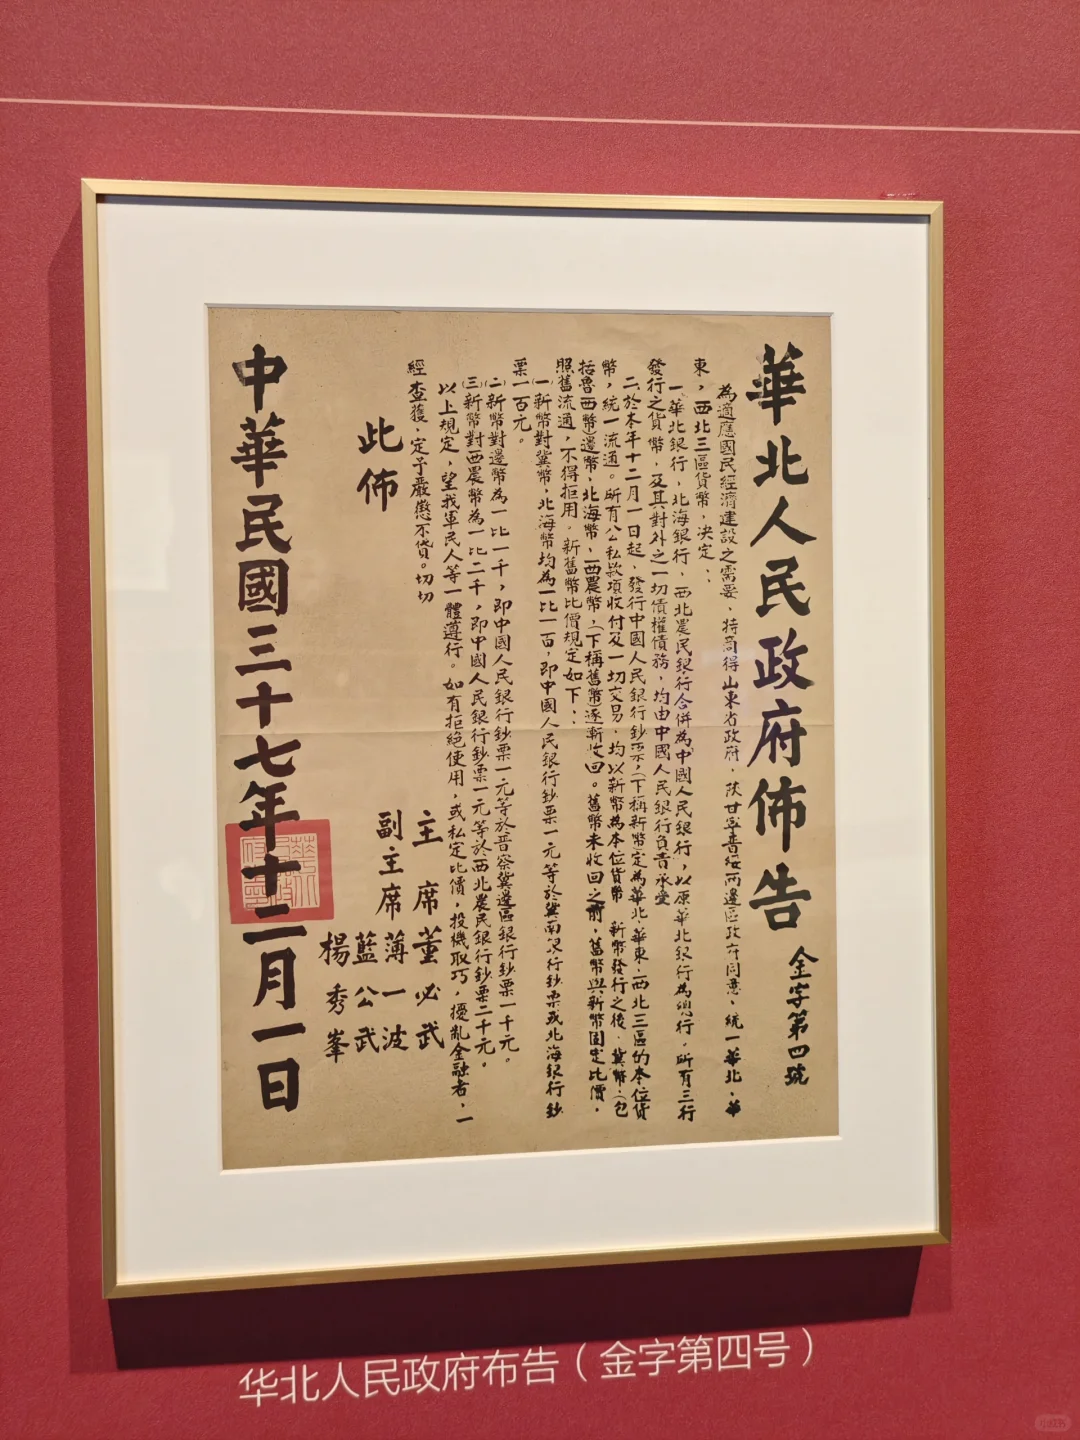 華北人民政府佈告
金字第四號
為適應國民經濟建設之需要，特商得山東省政府，陝甘寧晋綏兩邊區政府同意，統一華北、華
東，西北三區貨幣，决定：
一、華北銀行，北海銀行，西北農民銀行合併為中國人民銀行，以原華北銀行為總行，所有三行
發行之貨幣，及其對外之一切債權債務，均由中國人民銀行負責承受
二、於本年十二月一日起，發行中國人民銀行鈔票，（下稱新幣）定為華北、華東、西北三區的本位貨
幣，統一流通。所有公私款項收付及一切交易，均以新幣為本位貨幣 新幣發行之後，冀幣，（包
括魯西幣）邊幣，北海幣，西農幣，（下稱舊幣）逐漸收回。舊幣未收回之前，舊幣與新幣固定比價，
照舊流通，不得拒用。新舊幣比價規定如下：
㈠新幣對冀幣，北海幣均為一比一百，即中國人民銀行鈔票一元等於冀南銀行鈔票或北海銀行鈔
票一百元。
㈡新幣對邊幣為一比一千，即中國人民銀行鈔票一元等於晋察冀邊區銀行鈔票一千元。
㈢新幣對西農幣為一比二千，即中國人民銀行鈔票一元等於西北農民銀行鈔票二千元。
以上規定，望我軍民人等一體遵行。如有拒絕使用，或私定比價，投機取巧，擾亂金融者，一
經查獲，定予嚴懲不貸。切切
此佈
主席 董必武
副主席 薄一波
藍公武
楊秀峯
中華民國三十七年十二月一日
华北人民政府布告（金字第四号）
小红书